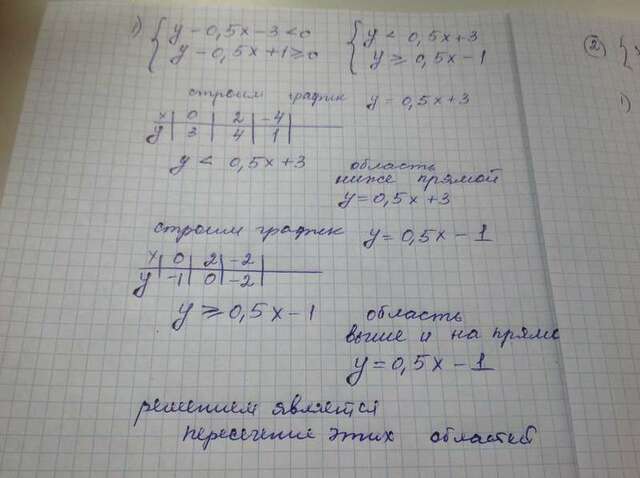 1) { y - 0,5x - 3 < 0 { y < 0,5x + 3
y - 0,5x + 1 ≥ 0 y ≥ 0,5x - 1
строим график y = 0,5x + 3
x | 0 | 2 | -4 |
y | 3 | 4 | 1 |
y < 0,5x + 3
область
ниже прямой
y = 0,5x + 3
строим график y = 0,5x - 1
x | 0 | 2 | -2 |
y | -1 | 0 | -2 |
y ≥ 0,5x - 1
область
выше и на прямо
y = 0,5x - 1
решением является
пересечение этих областей
2) {
1)